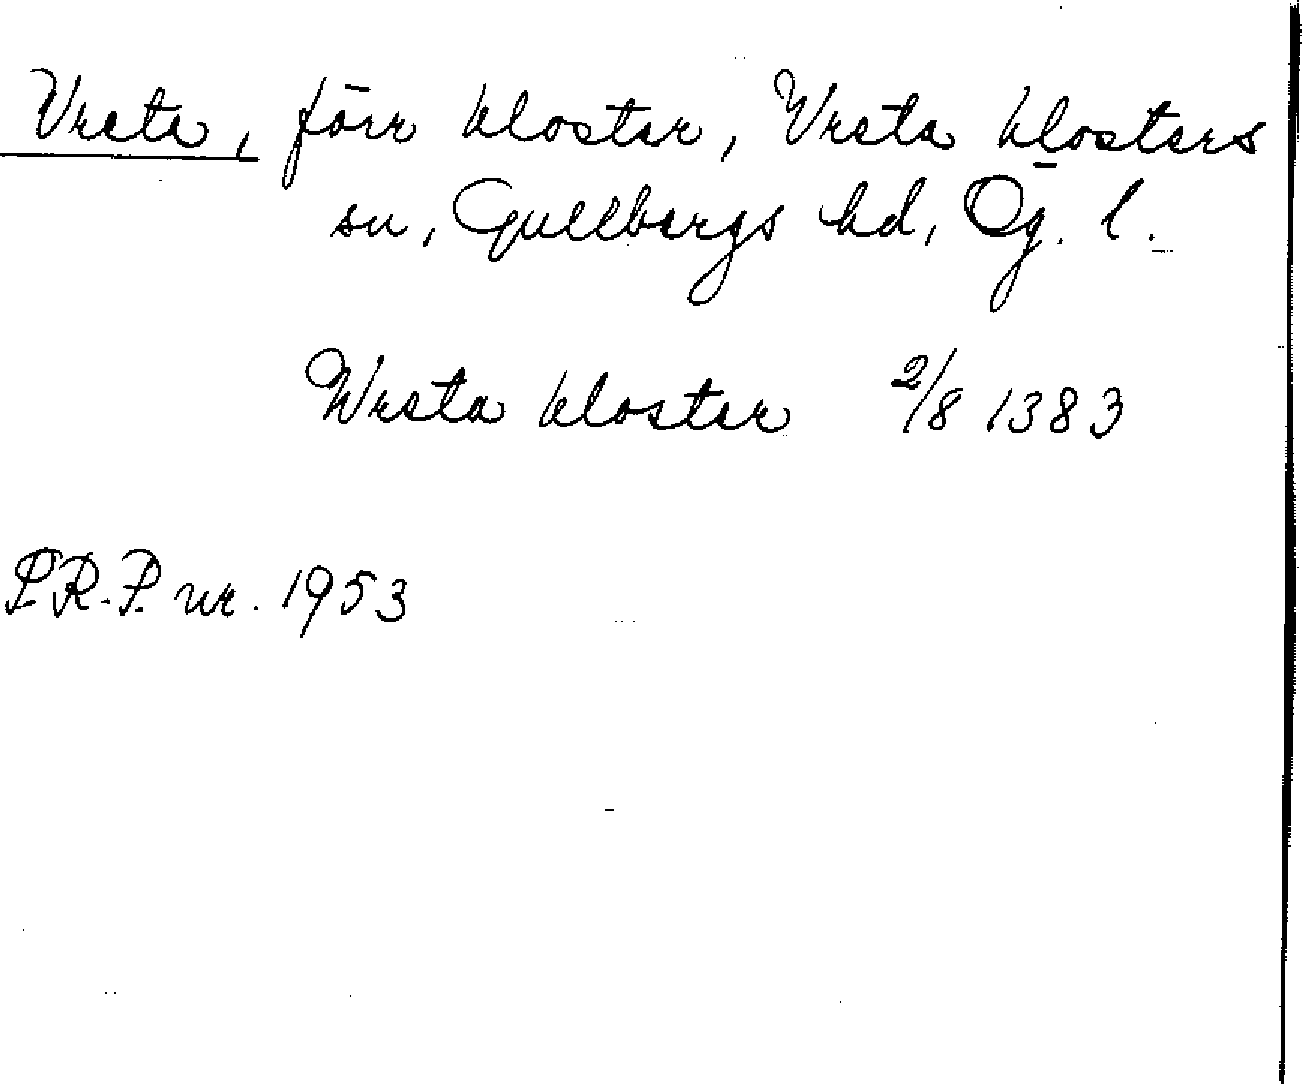 Vreta, förr kloster, Vreta klosters
sn, Gullbergs hd, Ög. l.
Wreta kloster 2/8 1383
P.R.-P. nr. 1953